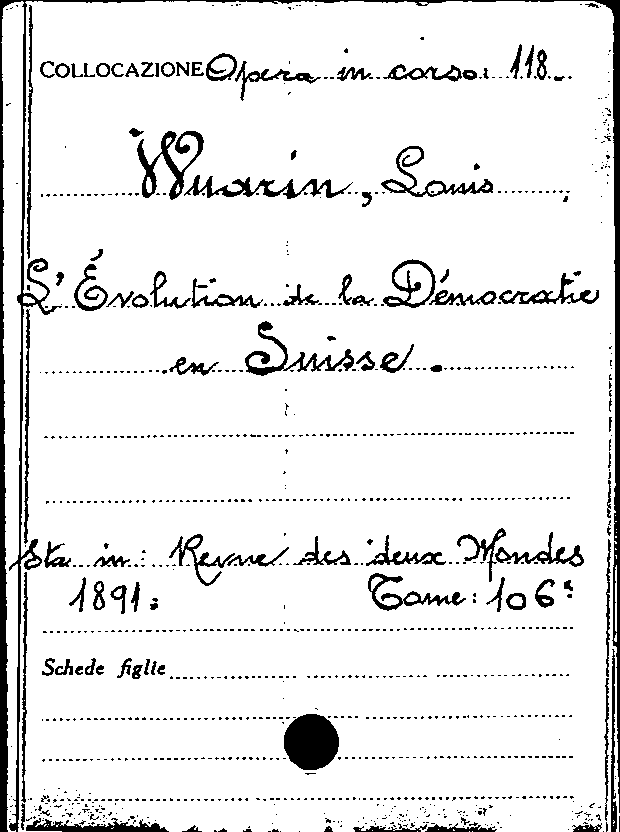 COLLOCAZIONE Opera in corso: 118.
Wuarin, Louis
L'Évolution de la Démocratie
en Suisse.
Sta in: Revue des deux Mondes
1891: Tome: 106:
Schede figlie